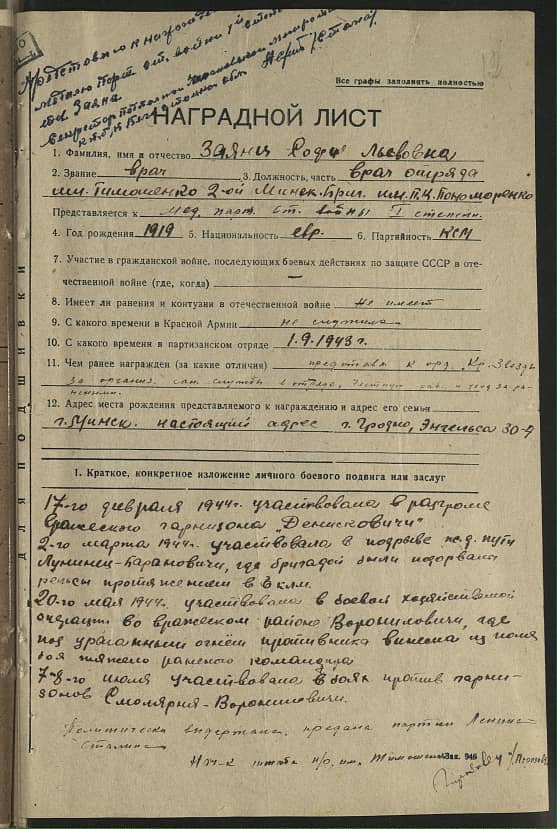 Представлю к награде
медалью Парт. от. войны 1й степ
тов. Заяна
Секретарь
Все графы заполнять полностью
НАГРАДНОЙ ЛИСТ
1. Фамилия, имя и отчество Заянц Софья Львовна
2. Звание врач 3. Должность, часть врач отряда
им. Тимошенко 2-ой Минск. Бриг. им. П.К. Пономоренко
Представляется к мед. парт. от. войны I степени.
4. Год рождения 1919 5. Национальность евр. 6. Партийность КСМ
7. Участие в гражданской войне, последующих боевых действиях по защите СССР в оте-
чественной войне (где, когда) —
8. Имеет ли ранения и контузии в отечественной войне не имеет
9. С какого времени в Красной Армии не служила
10. С какого времени в партизанском отряде 1.9.1943 г.
11. Чем ранее награжден (за какие отличия) представл. к орд. „Кр. Звезды
за организ. сан. службы в отряде, уход за ра-
неными.
12. Адрес места рождения представляемого к награждению и адрес его семьи
г. Минск. настоящий адрес г. Гродно, Энгельса 30-9
1. Краткое, конкретное изложение личного боевого подвига или заслуг
17-го февраля 1944г. участвовала в разгроме
вражеского гарнизона „Денисковичи"
2-го марта 1944г. участвовала в подрыве ж.д. пути
Лунинец-Барановичи, где бригадой были подорваны
рельсы протяжением в 6 клм.
20-го мая 1944г. участвовала в боевой хозяйственной
операции во вражеском районе Ворошиловичи, где
под ураганным огнём противника вынесла из поля
боя тяжело раненого командира
7-8-го июля участвовала в боях против гарни-
зонов Смолярня-Ворошиловичи.
Политически выдержана, предана партии Ленина
Сталина
Нач-к штаба п/о. им. Тимошенко
Зак. 946
ДЛЯ ПОДШИВКИ